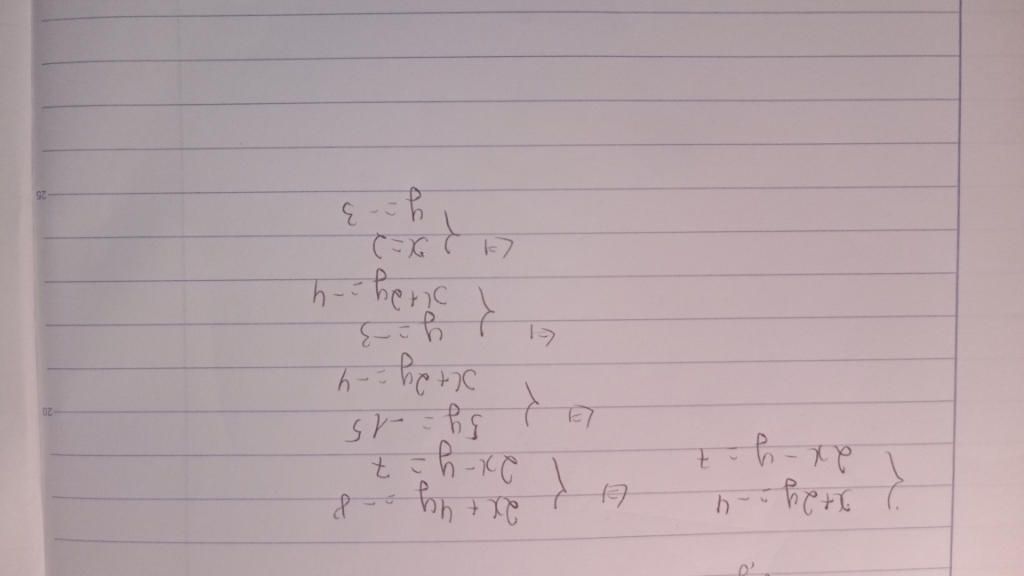 { x+2y = -4 <=> { 2x + 4y = -8
2x - y = 7 2x - y = 7
<=> { 5y = -15
x+2y = -4
<=> { y = -3
x+2y = -4
<=> { x = 2
y = -3
20
25